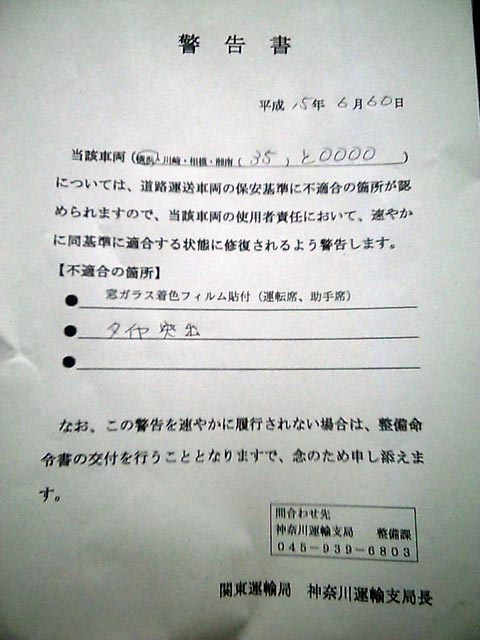 警告書
平成 15年 6月60日
当該車両（横浜・川崎・相模・湘南（ 35 ）と0000 ）
については、道路運送車両の保安基準に不適合の箇所が認
められますので、当該車両の使用者責任において、速やか
に同基準に適合する状態に修復されるよう警告します。
【不適合の箇所】
● 窓ガラス着色フィルム貼付（運転席、助手席）
● タイヤ突出
●
なお、この警告を速やかに履行されない場合は、整備命
令書の交付を行うこととなりますで、念のため申し添えま
す。
問合わせ先
神奈川運輸支局 整備課
045-939-6803
関東運輸局 神奈川運輸支局長